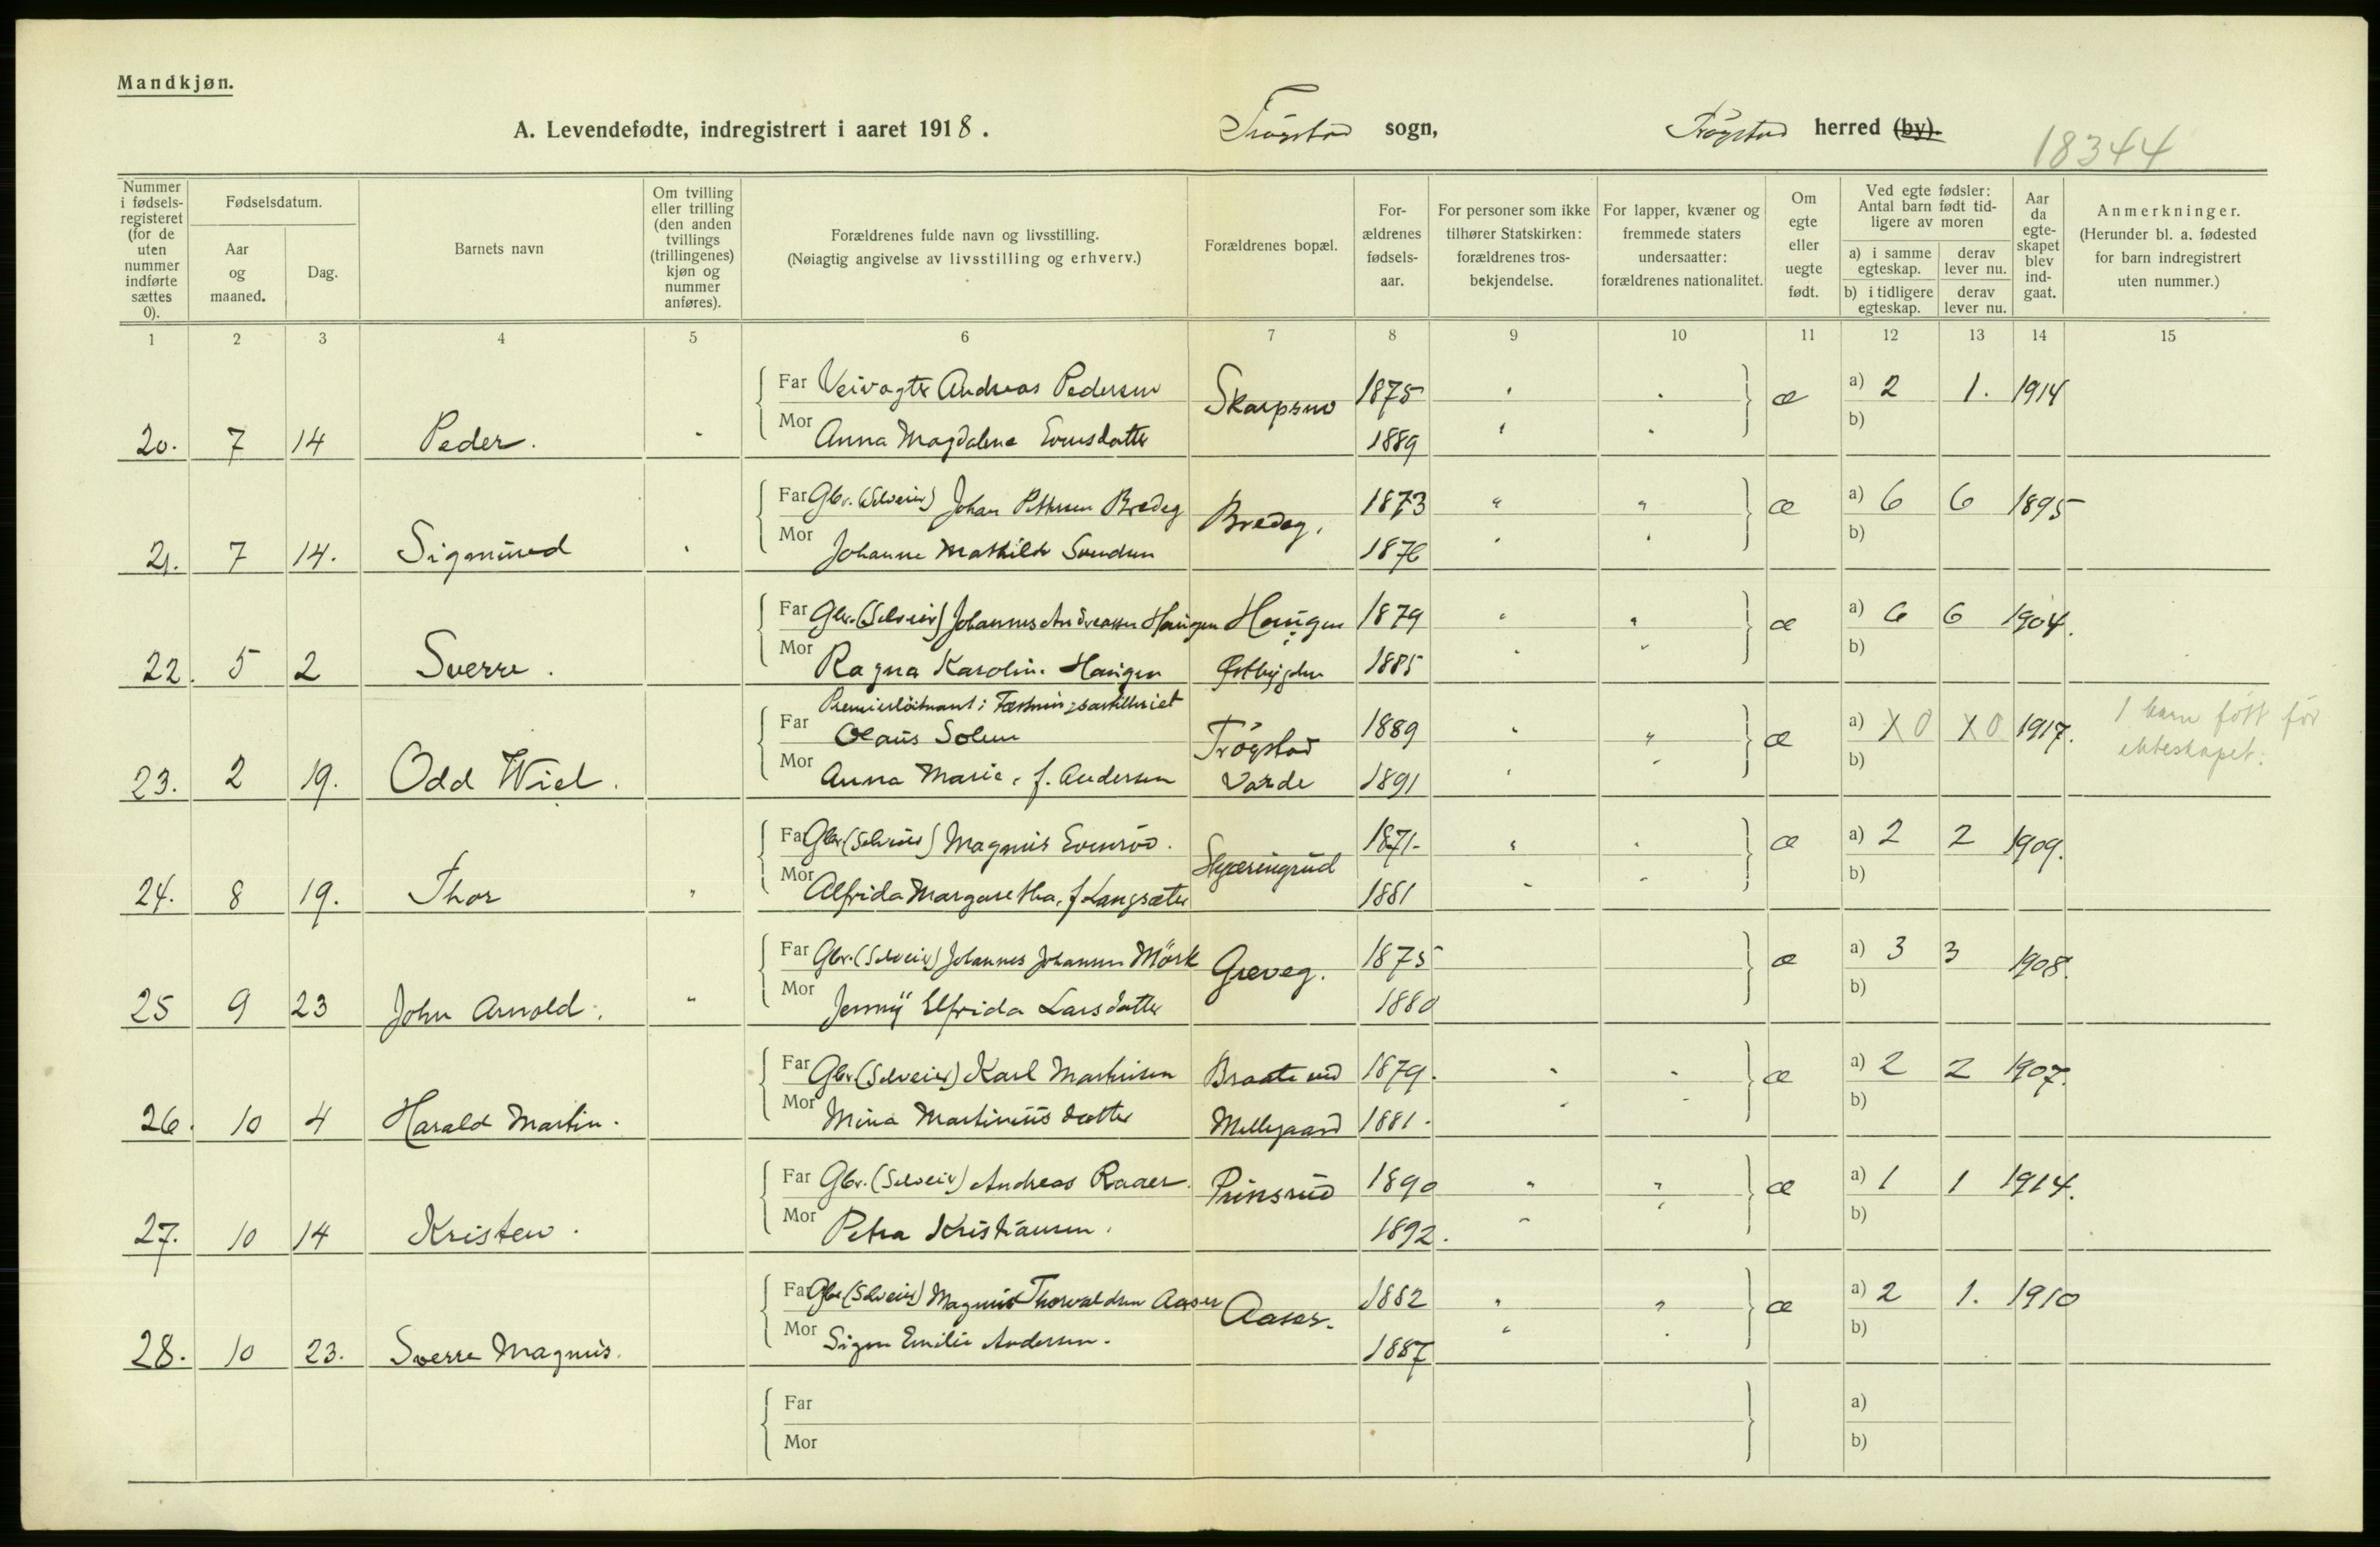 Mandkjøn.
A. Levendefødte, indregistrert i aaret 1918. Trögstad sogn, Trögstad herred (by).
18344
Nummer i fødselsregisteret (for de uten nummer indførte sættes 0).
Fødselsdatum.
Aar og maaned.
Dag.
Barnets navn
Om tvilling eller trilling (den anden tvillings (trillingenes) kjøn og nummer anføres).
Forældrenes fulde navn og livsstilling.
(Nøiagtig angivelse av livsstilling og erhverv.)
Forældrenes bopæl.
Forældrenes fødselsaar.
For personer som ikke tilhører Statskirken: forældrenes trosbekjendelse.
For lapper, kvæner og fremmede staters undersaatter: forældrenes nationalitet.
Om egte eller uegte født.
Ved egte fødsler: Antal barn født tidligere av moren
a) i samme egteskap.
derav lever nu.
b) i tidligere egteskap.
derav lever nu.
Aar da egteskapet blev indgaat.
Anmerkninger.
(Herunder bl. a. fødested for barn indregistrert uten nummer.)
1 2 3 4 5 6 7 8 9 10 11 12 13 14 15
Far Veivogter Andreas Pedersen Skarpsno 1875 " " æ a) 2 1. 1914
20. 7 14 Peder. " Mor Anna Magdalene Evensdatter 1889 " " b)
Far Gbr. (Selveier) Johan Pettersen Bredeg Bredeg. 1873 " " æ a) 6 6 1895
21. 7 14. Sigmund " Mor Johanne Mathilde Svendsen 1876 " " b)
Far Gbr. (Selveier) Johannes Andreassen Haugen Haugen 1879 " " æ a) 6 6 1904.
22. 5 2 Sverre. Mor Ragna Karolin. Haugen Østbygden 1885 " " b)
Premierløitnant i Fæstningsartilleriet
Far Olaus Solem Trögstad 1889 " " æ a) X 0 X 0 1917. 1 barn født før
23. 2 19. Odd Wiel. Mor Anna Marie, f. Andersen Varde 1891 " " b) ekteskapet.
Far Gbr. (Selveier) Magnus Evensrød. Skjæringrud 1871. " " æ a) 2 2 1909.
24. 8 19. Thor " Mor Alfrida Margaretha, f Langsæter 1881 " " b)
Far Gbr. (Selveier) Johannes Johansen Mörk Greveg. 1875 æ a) 3 3 1908.
25 9 23 John Arnold. " Mor Jenny Elfrida Larsdatter 1880 b)
Far Gbr. (Selveier) Karl Martinsen Braate ved 1879. " " æ a) 2 2 1907.
26. 10 4 Harald Martin. Mor Mina Martiniusdatter Mellegaard 1881. " " b)
Far Gbr. (Selveier) Andreas Raaer Prinsrud 1890 " " æ a) 1 1 1914.
27. 10 14 Kristen. Mor Petra Kristiansen. 1892. " " b)
Far Gbr (Selveier) Magnus Thorvaldsen Aaser Aaser. 1882 " " æ a) 2 1. 1910
28. 10 23. Sverre Magnus. Mor Signe Emilie Andersen. 1887 " " b)
Far a)
Mor b)